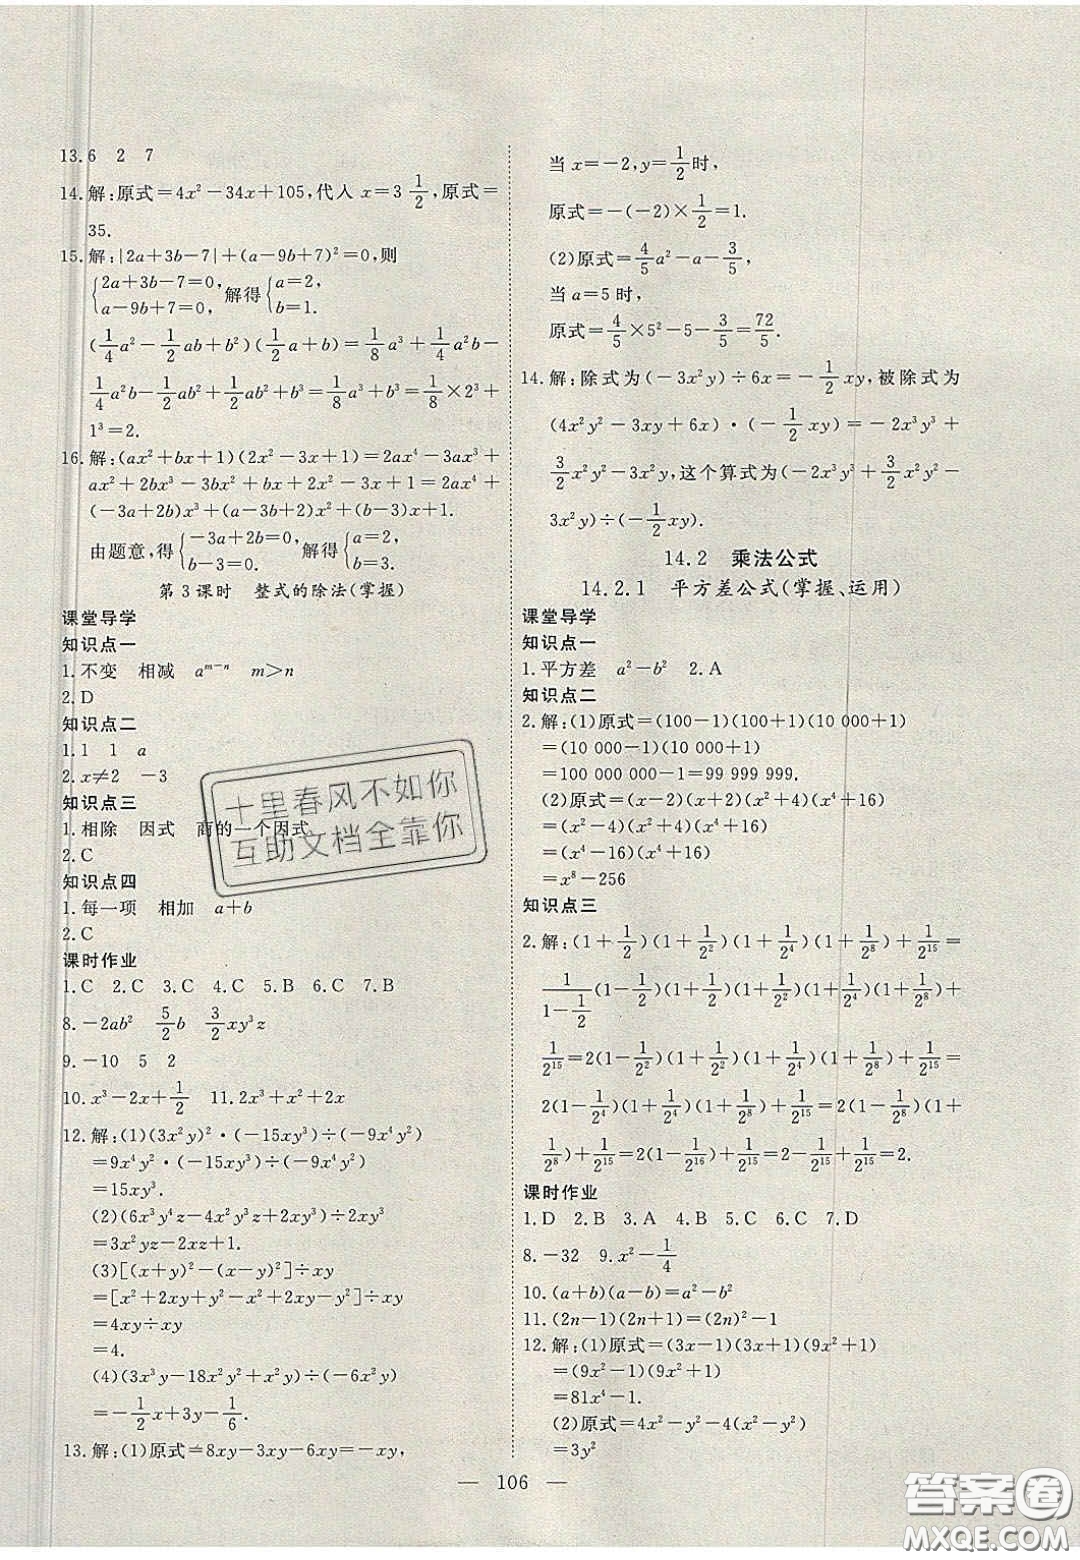 13.6　2　7
14.解:原式=4x²-34x+105,代入 x=3 1/2,原式=
35.
15.解:|2a+3b-7|+(a-9b+7)²=0,则
{2a+3b-7=0, a-9b+7=0, 解得{a=2, b=1.
(1/4a²-1/2ab+b²)(1/2a+b)=1/8a³+1/4a²b-
1/4a²b-1/2ab²+1/2ab²+b³=1/8a³+b³=1/8×2³+
1³=2.
16.解:(ax²+bx+1)(2x²-3x+1)=2ax⁴-3ax³+
ax²+2bx³-3bx²+bx+2x²-3x+1=2ax⁴+
(-3a+2b)x³+(a-3b+2)x²+(b-3)x+1.
由题意,得{-3a+2b=0, b-3=0, 解得{a=2, b=3.
第3课时　整式的除法(掌握)
课堂导学
知识点一
1.不变　相减　aᵐ⁻ⁿ　m>n
2.D
知识点二
1.1　1　a
2.x≠2　-3
知识点三
1.相除　因式　商的一个因式
2.C
知识点四
1.每一项　相加　a+b
2.C
课时作业
1.C　2.C　3.C　4.C　5.B　6.C　7.B
8.-2ab²　5/2b　3/2xy³z
9.-10　5　2
10.x³-2x+1/2　11.2x³+x²+2x
12.解:(1)(3x²y)²·(-15xy³)÷(-9x⁴y²)
=9x⁴y²·(-15xy³)÷(-9x⁴y²)
=15xy³.
(2)(6x³y⁴z-4x²y³z+2xy³)÷2xy³
=3x²yz-2xz+1.
(3)[(x+y)²-(x-y)²]÷xy
=[x²+2xy+y²-x²+2xy-y²]÷xy
=4xy÷xy
=4.
(4)(3x³y-18x²y²+x²y)÷(-6x²y)
=-1/2x+3y-1/6.
13.解:(1)原式=8xy-3xy-6xy=-xy,
当 x=-2,y=1/2时,
原式=-(-2)×1/2=1.
(2)原式=4/5a²-a-3/5,
当 a=5 时,
原式=4/5×5²-5-3/5=72/5.
14.解:除式为(-3x²y)÷6x=-1/2xy,被除式为
(4x²y²-3xy+6x)·(-1/2xy)=-2x³y³+
3/2x²y²-3x²y,这个算式为(-2x³y³+3/2x²y²-
3x²y)÷(-1/2xy).
14.2　乘法公式
14.2.1　平方差公式(掌握、运用)
课堂导学
知识点一
1.平方差　a²-b²　2.A
知识点二
2.解:(1)原式=(100-1)(100+1)(10 000+1)
=(10 000-1)(10 000+1)
=100 000 000-1=99 999 999.
(2)原式=(x-2)(x+2)(x²+4)(x⁴+16)
=(x²-4)(x²+4)(x⁴+16)
=(x⁴-16)(x⁴+16)
=x⁸-256
知识点三
2.解:(1+1/2)(1+1/2²)(1+1/2⁴)(1+1/2⁸)+1/2¹⁵=
1/(1-1/2)(1-1/2)(1+1/2)(1+1/2²)(1+1/2⁴)(1+1/2⁸)+
1/2¹⁵=2(1-1/2²)(1+1/2²)(1+1/2⁴)(1+1/2⁸)+1/2¹⁵=
2(1-1/2⁴)(1+1/2⁴)(1+1/2⁸)+1/2¹⁵=2(1-1/2⁸)(1+
1/2⁸)+1/2¹⁵=2(1-1/2¹⁶)+1/2¹⁵=2-1/2¹⁵+1/2¹⁵=2.
课时作业
1.D　2.B　3.A　4.B　5.C　6.C　7.D
8.-32　9.x²-1/4
10.(a+b)(a-b)=a²-b²
11.(2n-1)(2n+1)=(2n)²-1
12.解:(1)原式=(3x-1)(3x+1)(9x²+1)
=(9x²-1)(9x²+1)
=81x⁴-1.
(2)原式=4x²-y²-(4x²-4y²)
=3y²
— 106 —
十里春风不如你
互助文档全靠你
答案圈
MXQE.COM